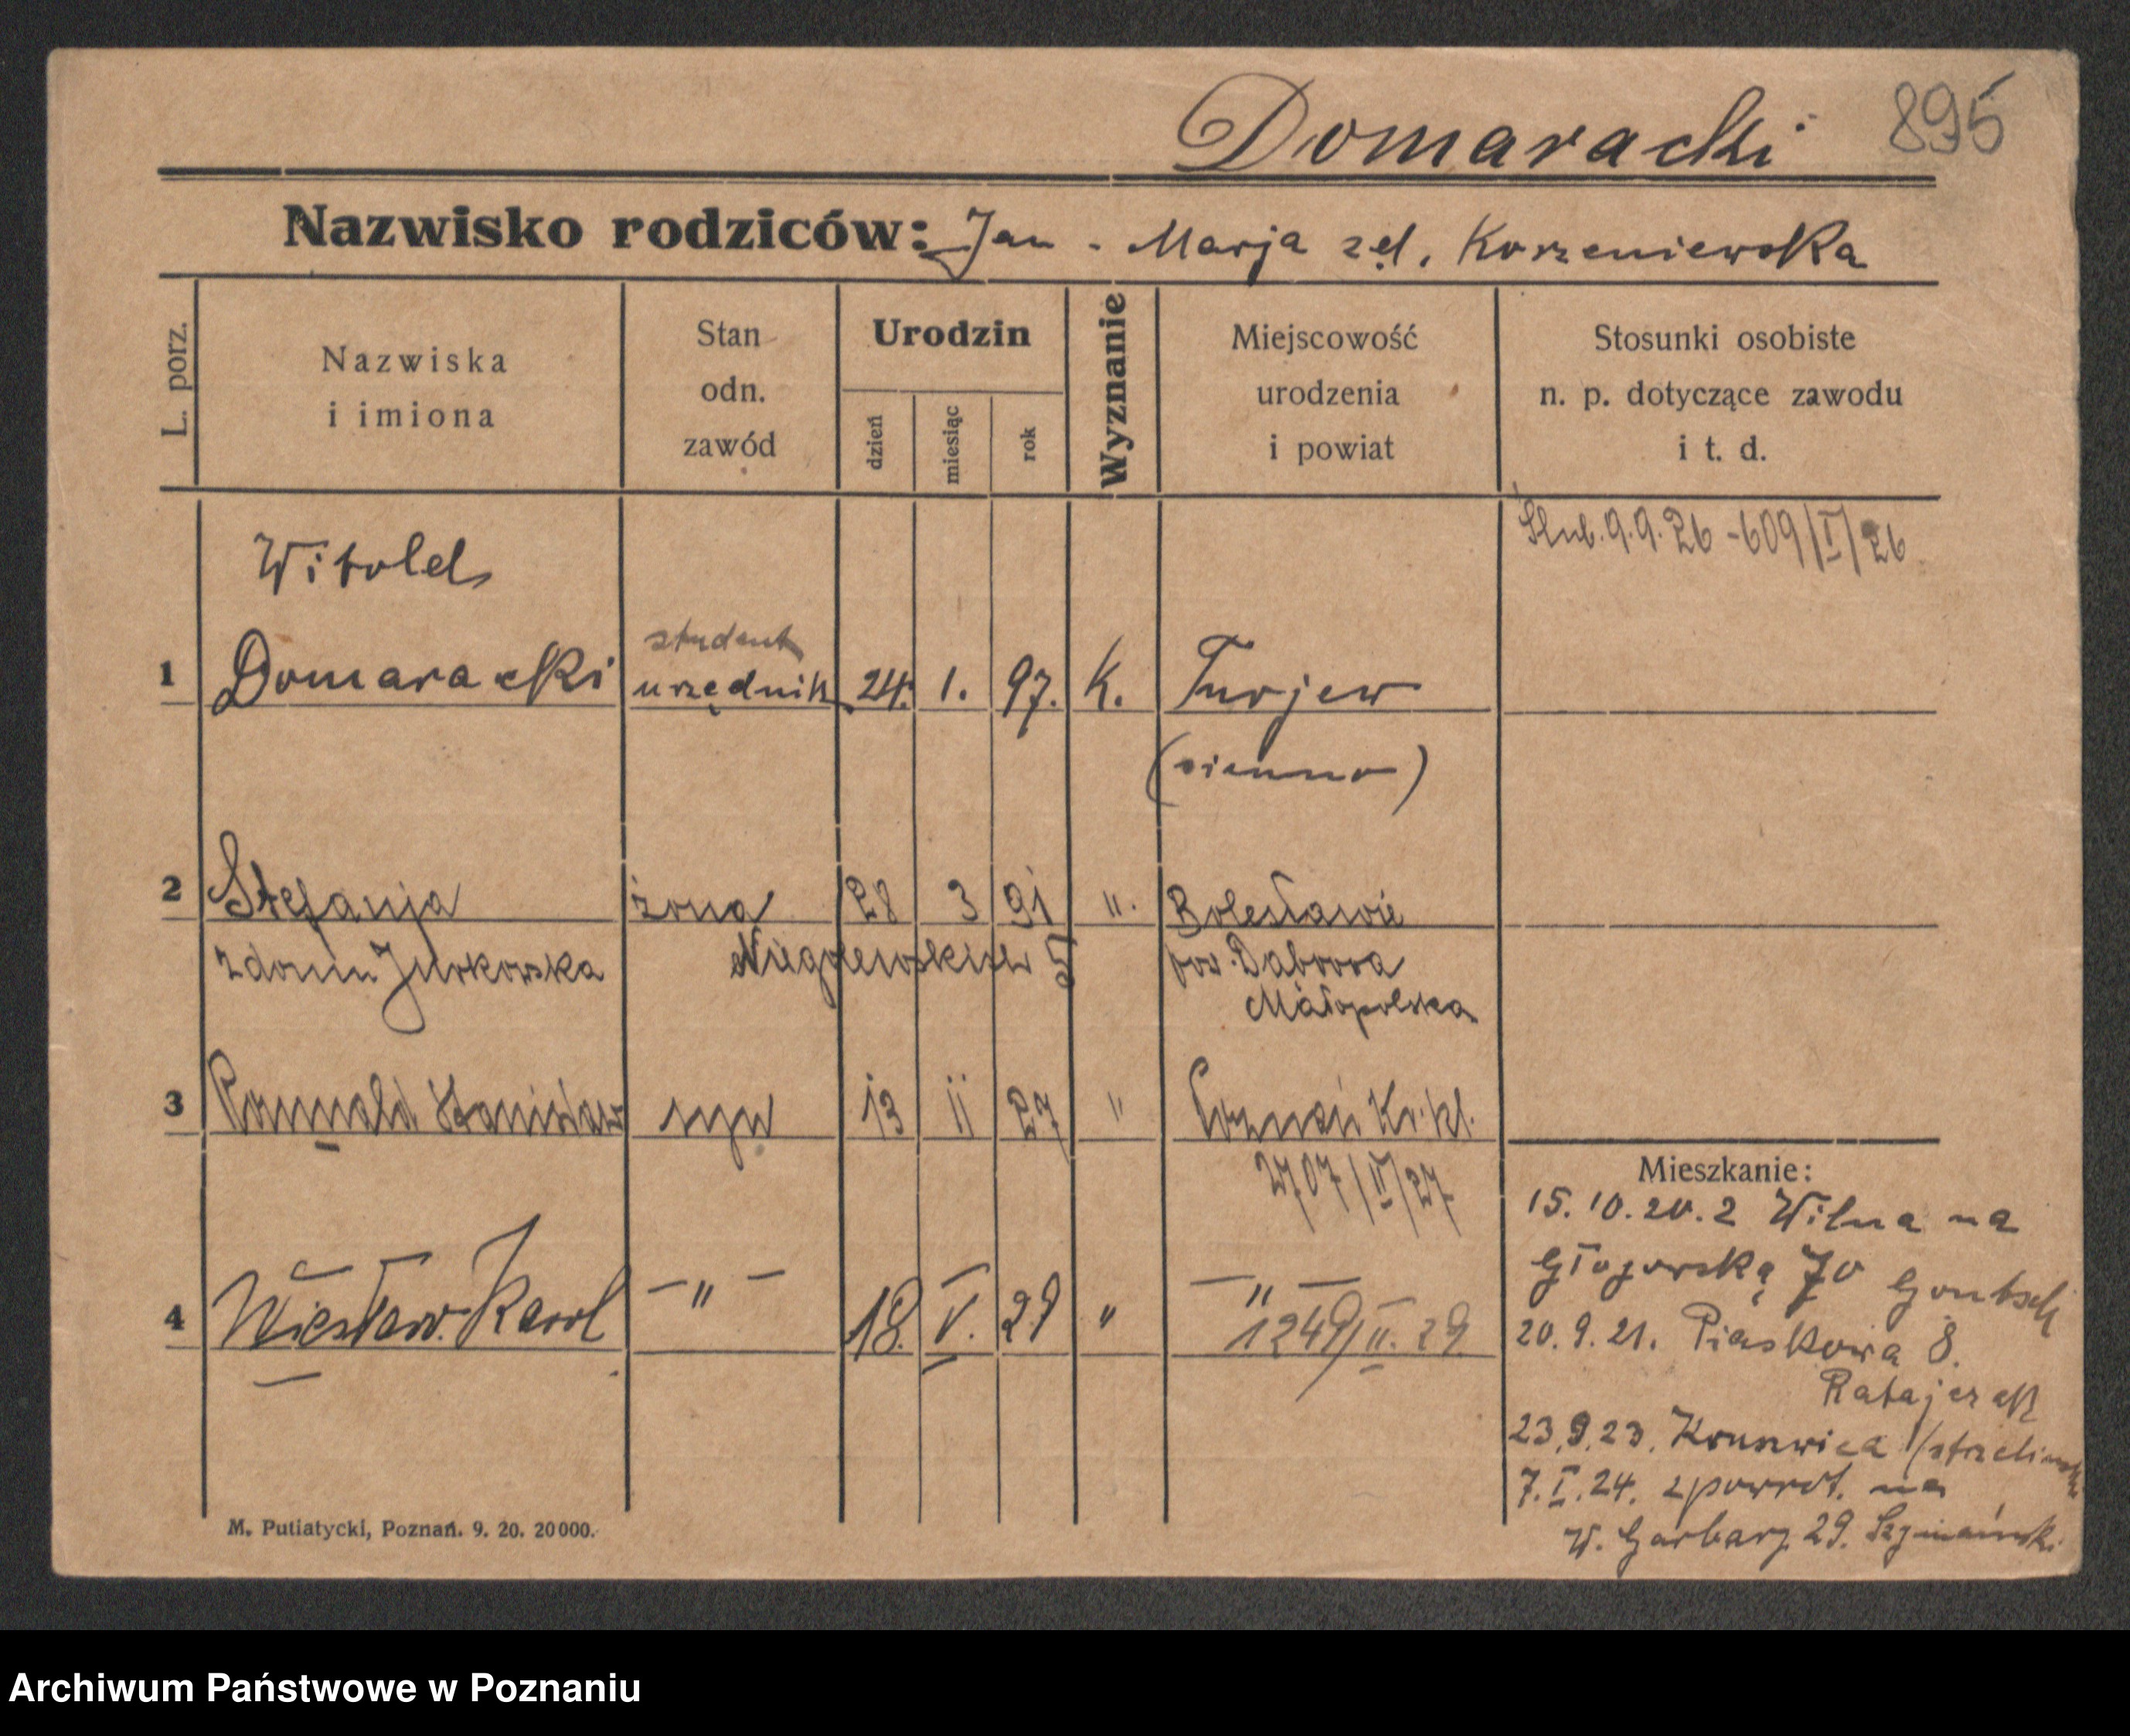 Domaracki 895
Nazwisko rodziców: Jan - Marja zd. Korzeniewska
L. porz.
Nazwiska
i imiona
Stan
odn.
zawód
Urodzin
dzień
miesiąc
rok
Wyznanie
Miejscowość
urodzenia
i powiat
Stosunki osobiste
n. p. dotyczące zawodu
i t. d.
Ślub. 9.9.26 - 609/I/26
Witold
student
1 Domaracki urzędnik 24. 1. 97. k. Turjew
2 Stefanja żona 28 3 91 ". Bolesławie
z domu Jurkowska Niegolewskich pow. Dąbrowa
Małopolska
3 Romuald Stanisław syn 13 11 27 " Poznań
2707/II/27
Mieszkanie:
15. 10. 20. z Wilna na
Głogowską 70
4 Wiesław Karol — " — 18. V. 29 " — " —
1249/II. 29
20. 9. 21. Piaskowa 8.
Ratajczak
23. 9. 23. Kruszwica
7. I. 24. zpowrót. na
W. Garbary 29. Szymański
M. Putiatycki, Poznań. 9. 20. 20000.
Archiwum Państwowe w Poznaniu